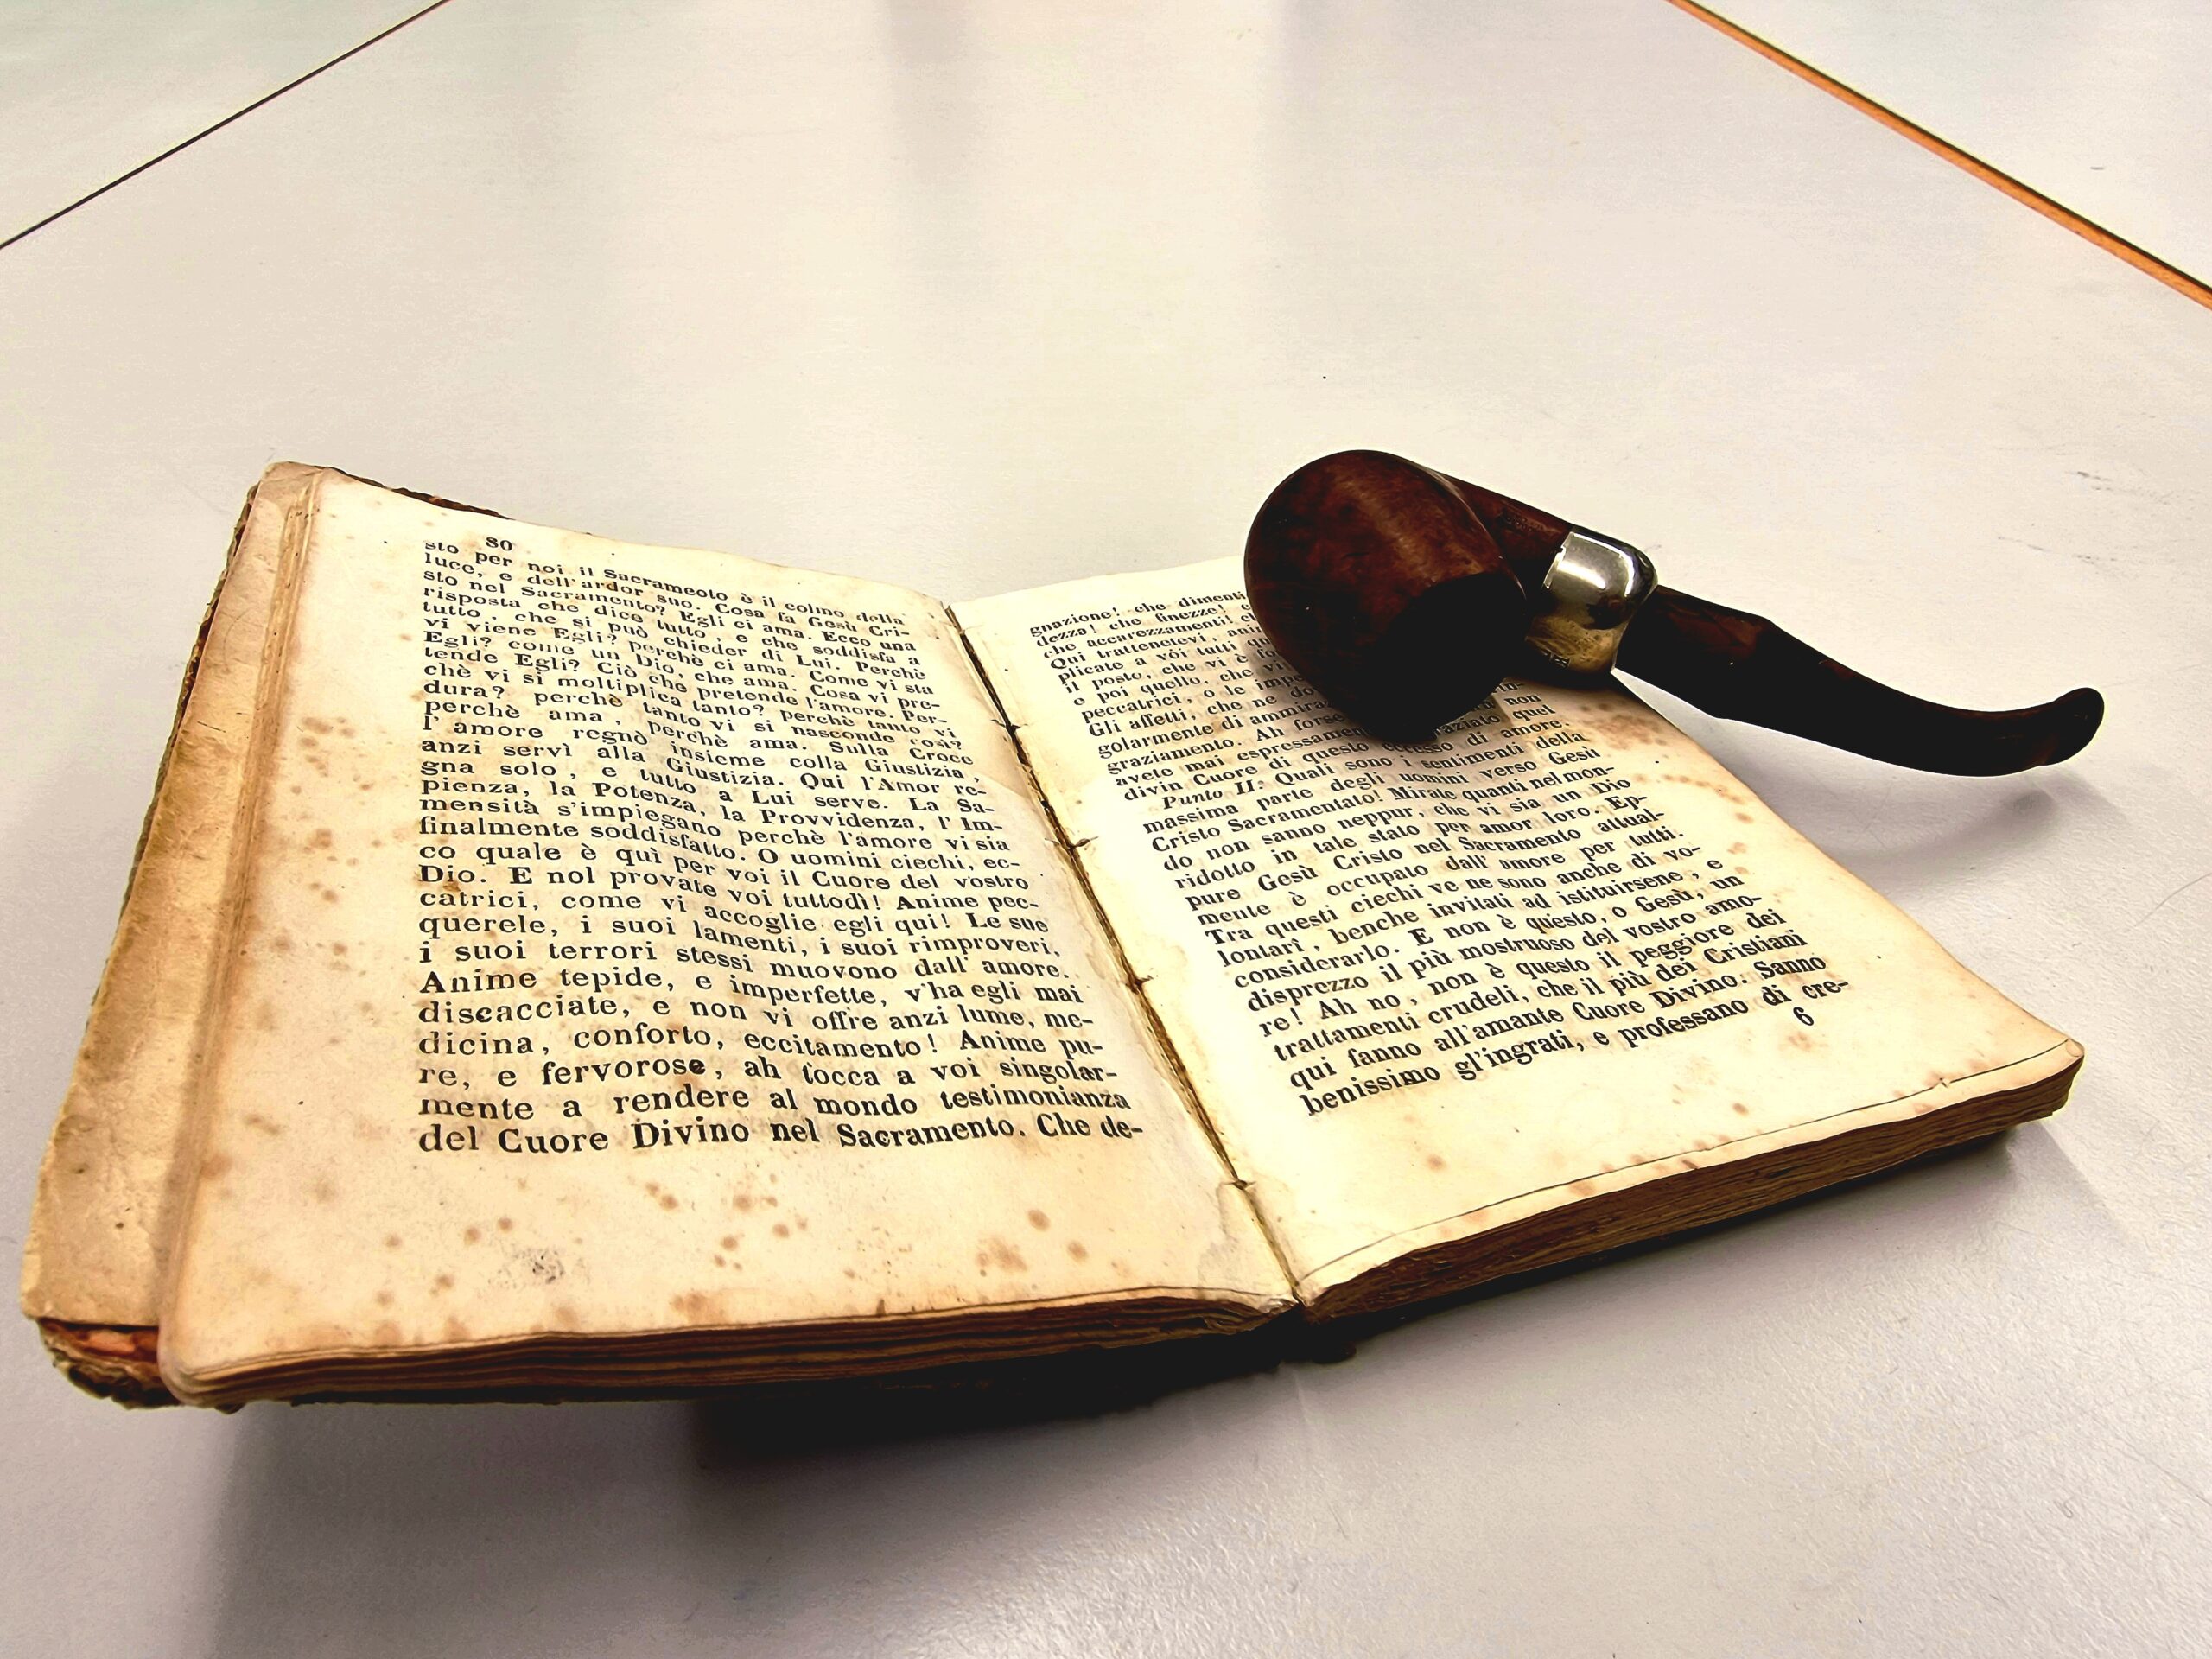 80
sto per noi il Sacrameoto è il colmo della
luce, e dell'ardor suo. Cosa fa Gesù Cri-
sto nel Sacramento? Egli ci ama. Ecco una
risposta che dice tutto, e che soddisfa a
tutto, che si può chieder di Lui. Perchè
vi viene Egli? perchè ci ama. Come vi sta
Egli? come un Dio, che ama. Cosa vi pre-
tende Egli? Ciò che pretende l'amore. Per-
chè vi si moltiplica tanto? perchè tanto vi
dura? perchè tanto vi si nasconde così?
perchè ama, perchè ama. Sulla Croce
l'amore regnò insieme colla Giustizia,
anzi servì alla Giustizia. Qui l'Amor re-
gna solo, e tutto a Lui serve. La Sa-
pienza, la Potenza, la Provvidenza, l'Im-
mensità s'impiegano perchè l'amore vi sia
finalmente soddisfatto. O uomini ciechi, ec-
co quale è quì per voi il Cuore del vostro
Dio. E nol provate voi tuttodì! Anime pec-
catrici, come vi accoglie egli qui! Le sue
querele, i suoi lamenti, i suoi rimproveri,
i suoi terrori stessi muovono dall'amore.
Anime tepide, e imperfette, v'ha egli mai
discacciate, e non vi offre anzi lume, me-
dicina, conforto, eccitamento! Anime pu-
re, e fervorose, ah tocca a voi singolar-
mente a rendere al mondo testimonianza
del Cuore Divino nel Sacramento. Che de-
gnazione! che
dezza! che finezze!
che accarezzamenti!
Qui trattenetevi,
plicate a voi tutti
il posto, che vi è
e poi quello, che vi
peccatrici, o le
Gli affetti, che ne
golarmente di non
graziamento. Ah forse quel
avete mai di amore.
divin Cuore di questo sentimenti della
Punto II. Quali sono i
massima parte degli uomini verso Gesù
Cristo Sacramentato! Mirate quanti nel mon-
do non sanno neppur, che vi sia un Dio
ridotto in tale stato per amor loro. Ep-
pure Gesù Cristo nel Sacramento attual-
mente è occupato dall'amore per tutti.
Tra questi ciechi ve ne sono anche di vo-
lontarì, benche invitati ad istituirsene, e
considerarlo. E non è questo, o Gesù, un
disprezzo il più mostruoso del vostro amo-
re! Ah no, non è questo il peggiore dei
trattamenti crudeli, che il più dei Cristiani
qui fanno all'amante Cuore Divino. Sanno
benissimo gl'ingrati, e professano di cre-
6